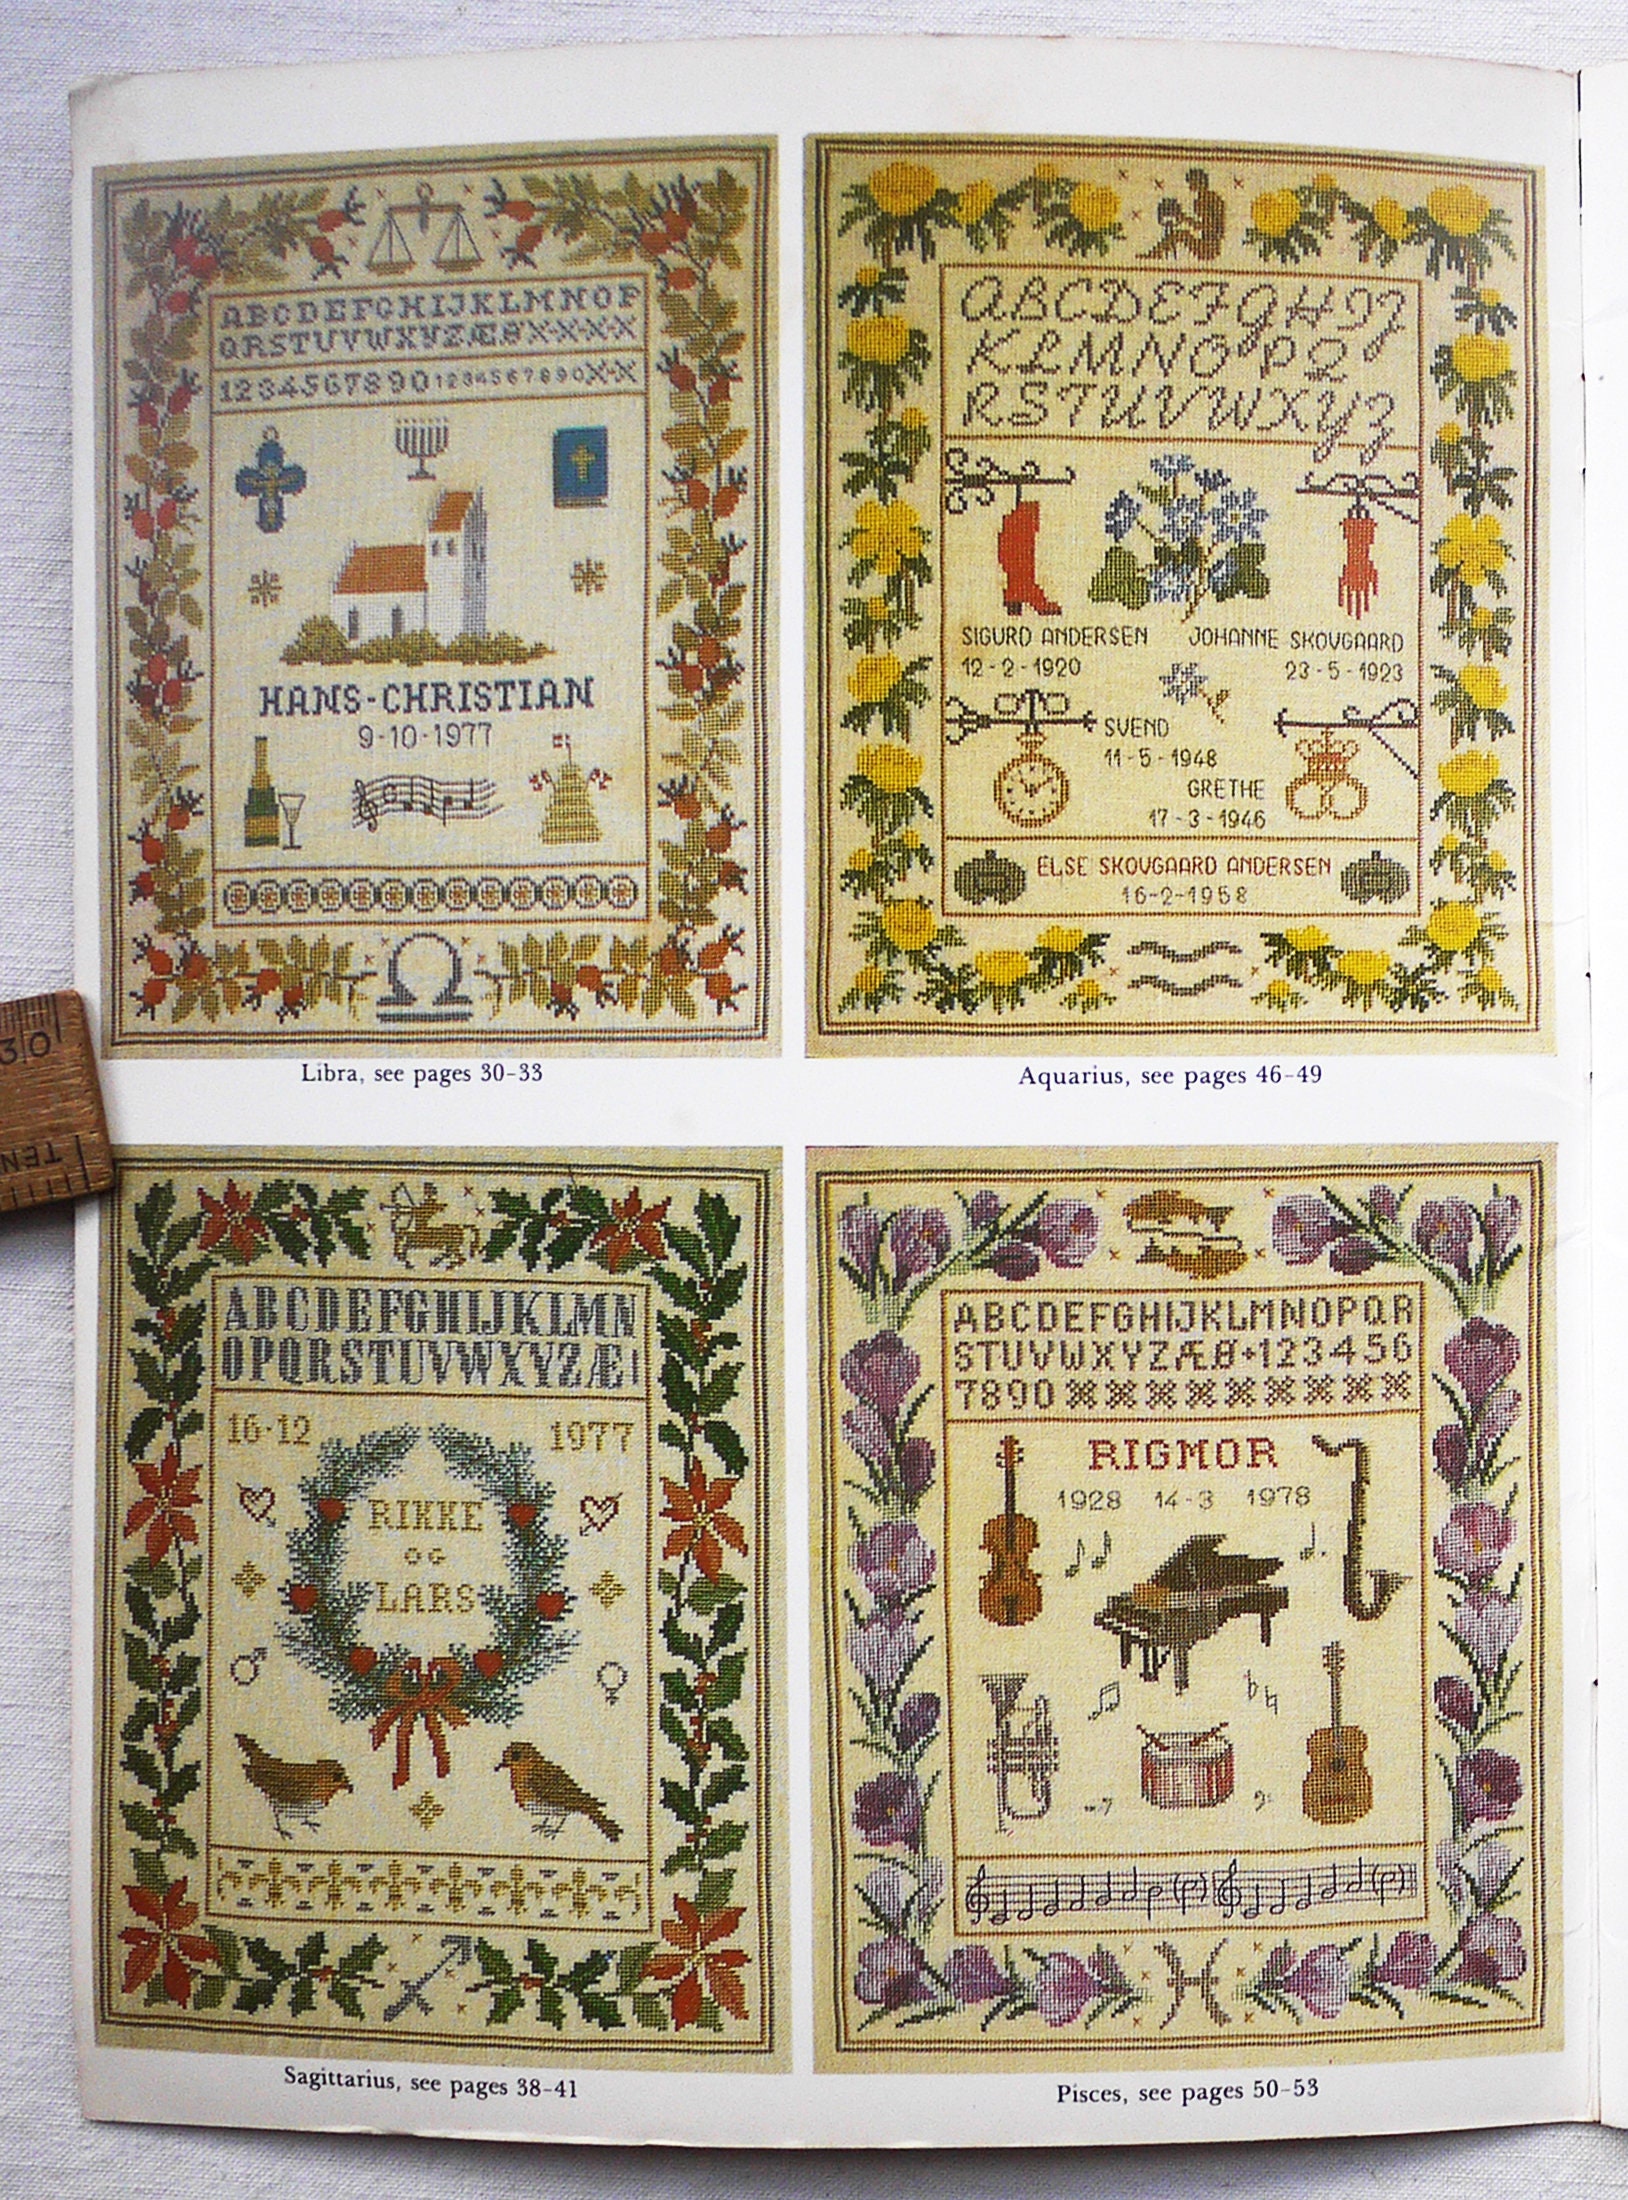 ABCDEFGHIJKLMNOP
QRSTUVWXYZÆØ
12345678901234567890
HANS-CHRISTIAN
9-10-1977
Libra, see pages 30-33
ABCDEFGHIJ
KLMNOPQ
RSTUVWXYZ
SIGURD ANDERSEN
12-2-1920
JOHANNE SKOVGAARD
23-5-1923
SVEND
11-5-1948
GRETHE
17-3-1946
ELSE SKOVGAARD ANDERSEN
16-2-1958
Aquarius, see pages 46-49
30
TEN
ABCDEFGHIJKLMN
OPQRSTUVWXYZÆ
16-12 1977
RIKKE
OG
LARS
Sagittarius, see pages 38-41
ABCDEFGHIJKLMNOPQR
STUVWXYZÆØ+123456
7890
RIGMOR
1928 14-3 1978
Pisces, see pages 50-53